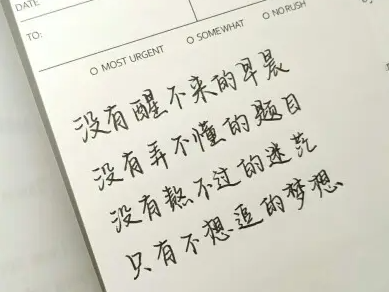 DATE
TO:
MOST URGENT SOMEWHAT NO RUSH
没有醒不来的早晨
没有弄不懂的题目
没有熬不过的迷茫
只有不想追的梦想